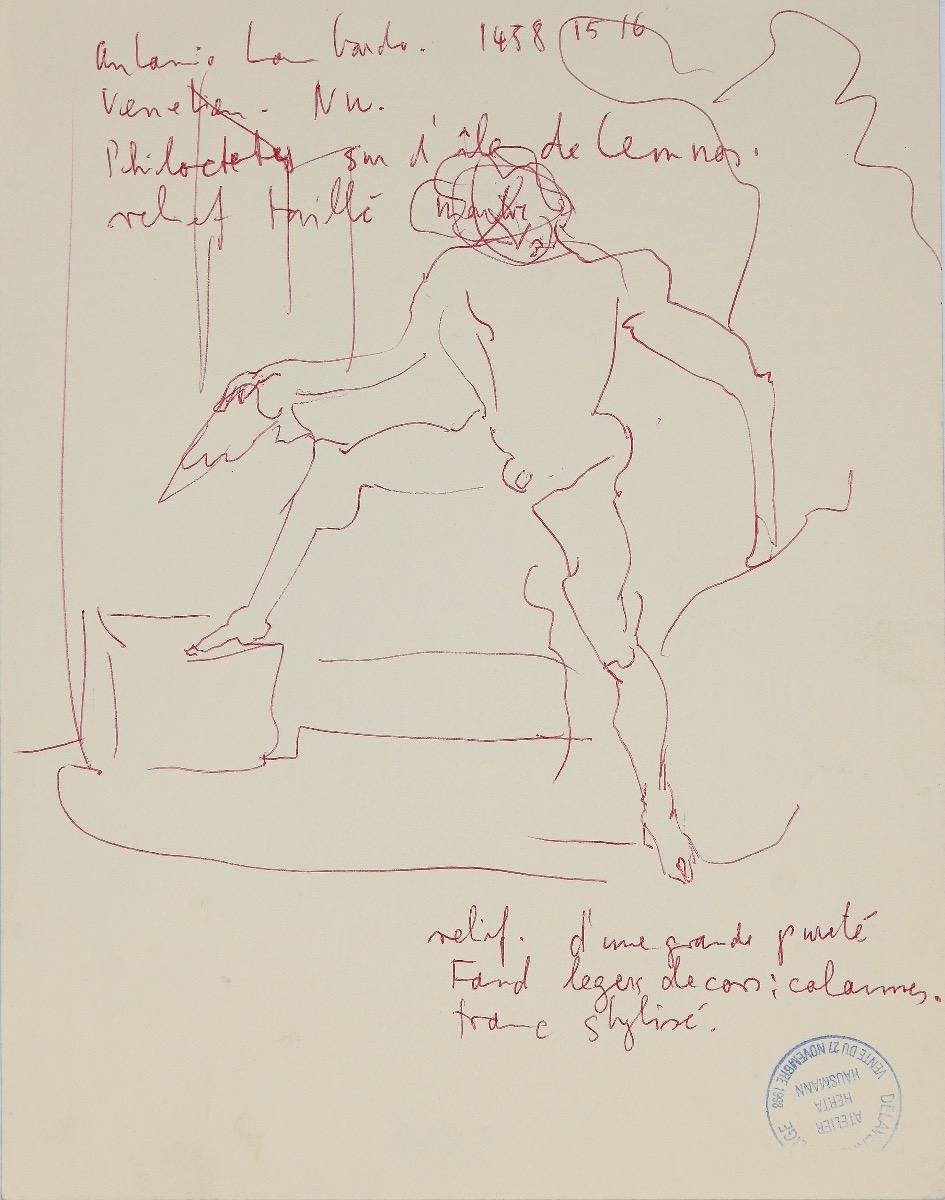 Antonio Lombardo. 1458 1516
Venetian. Nu.
Philoctetes sur d'île de Lemnos.
relief taillé marbre
relief. d'une grande pureté
Fond legers decors: colonnes.
tronc stylisé.
VENTE DU 27 NOVEMBRE 1998
ATELIER
HERTA
HAUSMANN